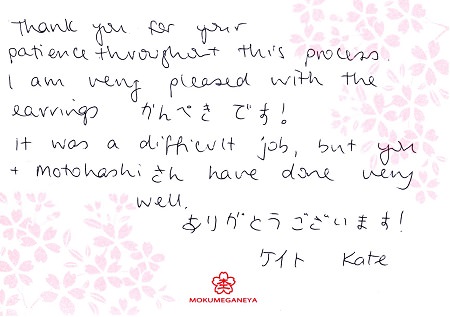 Thank you for your
patience throughout this process.
I am very pleased with the
earrings かんぺき です!
it was a difficult job, but you
+ Motohashi さん have done very
well.
ありがとうございます!
ケイト Kate
MOKUMEGANEYA